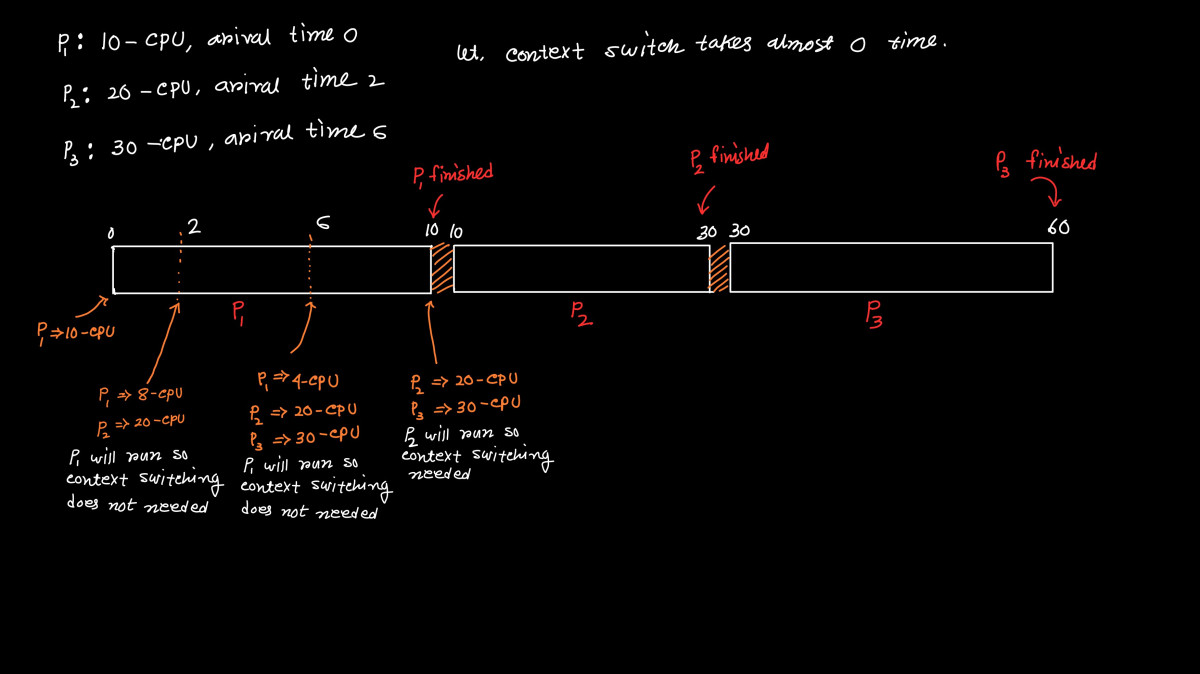 P1: 10-CPU, arival time 0
let, context switch takes almost 0 time.
P2: 20-CPU, arival time 2
P3: 30-CPU, arival time 6
P1 finished
P2 finished
P3 finished
0 2 6 10 10 30 30 60
P1 P2 P3
P1 ⇒ 10-CPU
P1 ⇒ 8-CPU
P2 ⇒ 20-CPU
P1 will run so
context switching
does not needed
P1 ⇒ 4-CPU
P2 ⇒ 20-CPU
P3 ⇒ 30-CPU
P1 will run so
context switching
does not needed
P2 ⇒ 20-CPU
P3 ⇒ 30-CPU
P2 will run so
context switching
needed